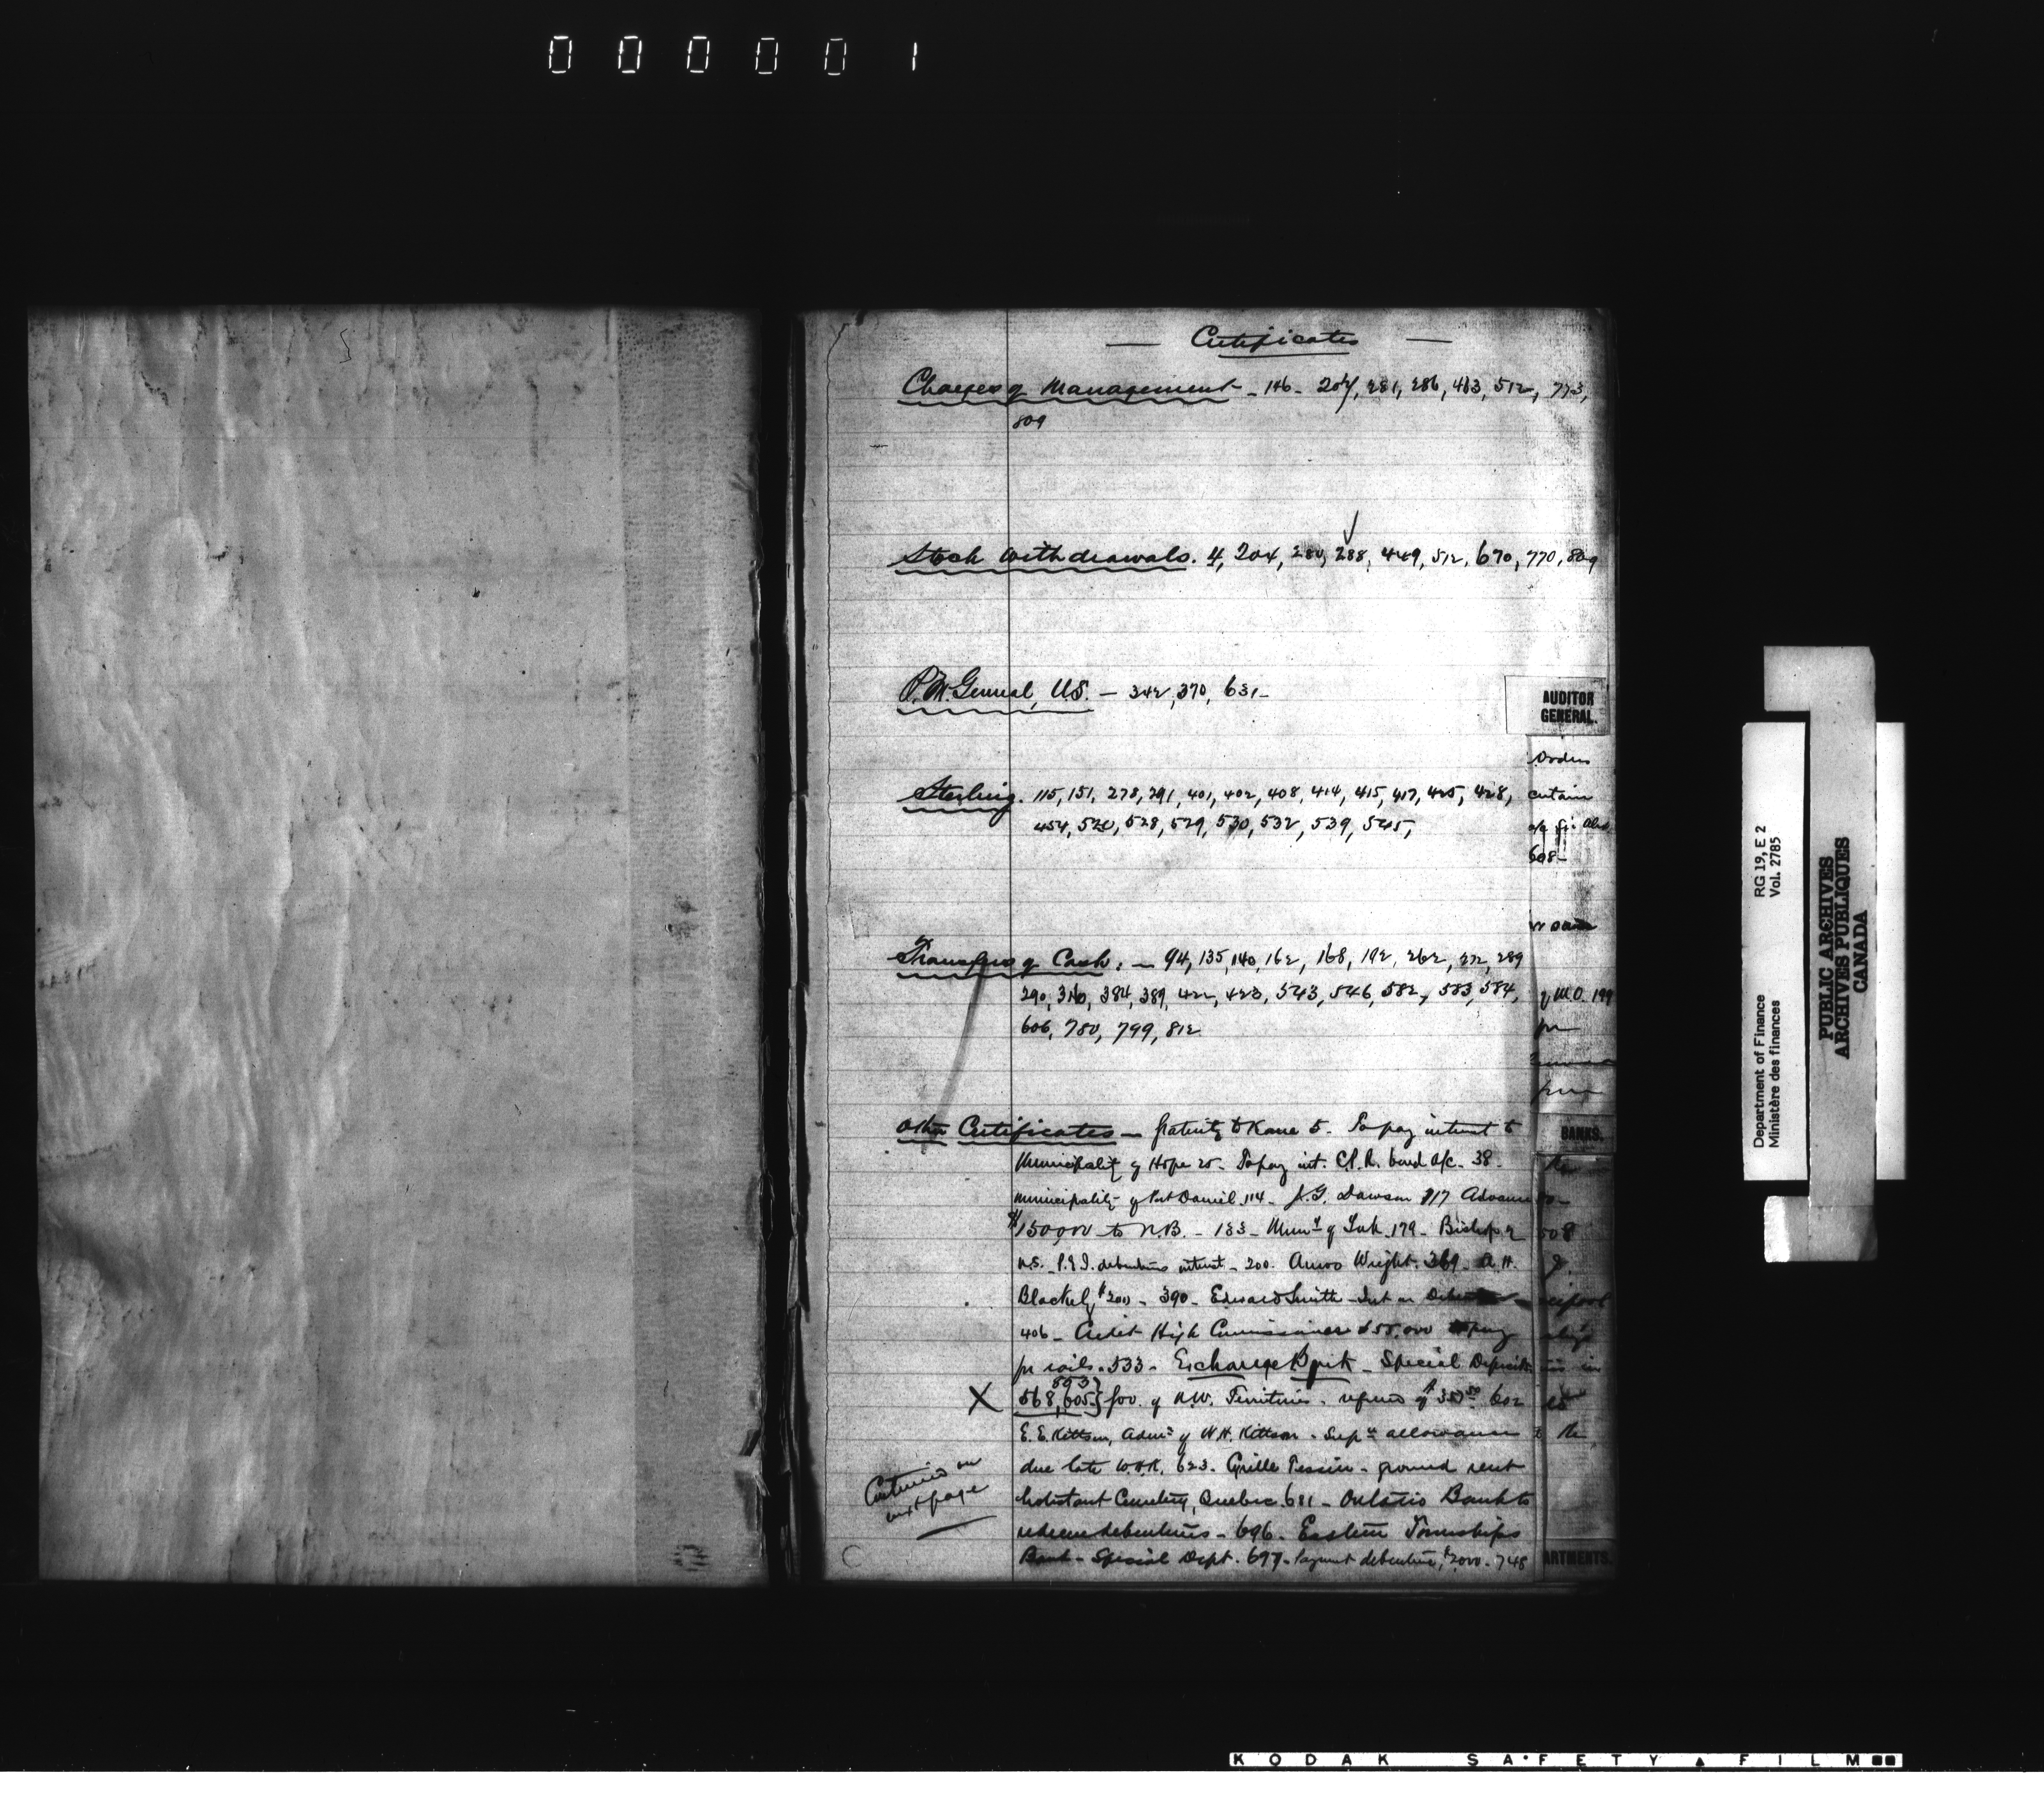 000001
— Certificates —
Charges of Management - 146 - 204, 281, 286, 463, 512, 773,
809
Stock Withdrawals. 4, 204, 280, 288, 449, 512, 670, 770, 809
P.M. General, U.S. — 342, 370, 631 -
AUDITOR
GENERAL.
Orders
Sterling. 115, 151, 278, 291, 401, 402, 408, 414, 415, 417, 425, 428,
certain
454, 520, 528, 529, 530, 532, 539, 545,
608 -
Transfers of Cash: — 94, 135, 140, 162, 168, 192, 262, 272, 289
290, 310, 384, 389, 422, 423, 543, 546, 582, 583, 584,
of M.O. 199
606, 780, 799, 812
Other Certificates — Gratuity to Kane 5. To pay interest to
BANKS.
Municipality of Hope 25 - To pay int. C.P.R. bond a/c. 38 -
Municipality of Port Daniel 114 - S.G. Dawson 117 Advance
$150,000 to N.B. - 133 - Mun^y of 179 - Bishop of
508
N.S. - P.E.I. debentures interest - 200. Amos Wright. 369 - A.H.
Blackely $200 - 390 - Edward Smith - Int on
406 - Credit High Commissioner £55,000 to pay
for rails. 533 - Exchange Bank - Special Deposit
893
X 568, 605 } Gov. of N.W. Territories - refund of $35 602
E.E. Kittson, Adm^x of W.H. Kittson - Sup^n allowance
due late W.H.K. 623 - Cyrille Tessier - ground rent
Continued on
next page
Protestant Cemetery, Quebec. 681 - Ontario Bank to
redeem debentures - 696 - Eastern Townships
Bank - Special Dept. 697 - Payment debenture, $2000 - 748
ARTMENTS.
RG 19, E 2
Vol. 2785
Department of Finance
Ministère des finances
PUBLIC ARCHIVES
ARCHIVES PUBLIQUES
CANADA
KODAK SAFETY FILM